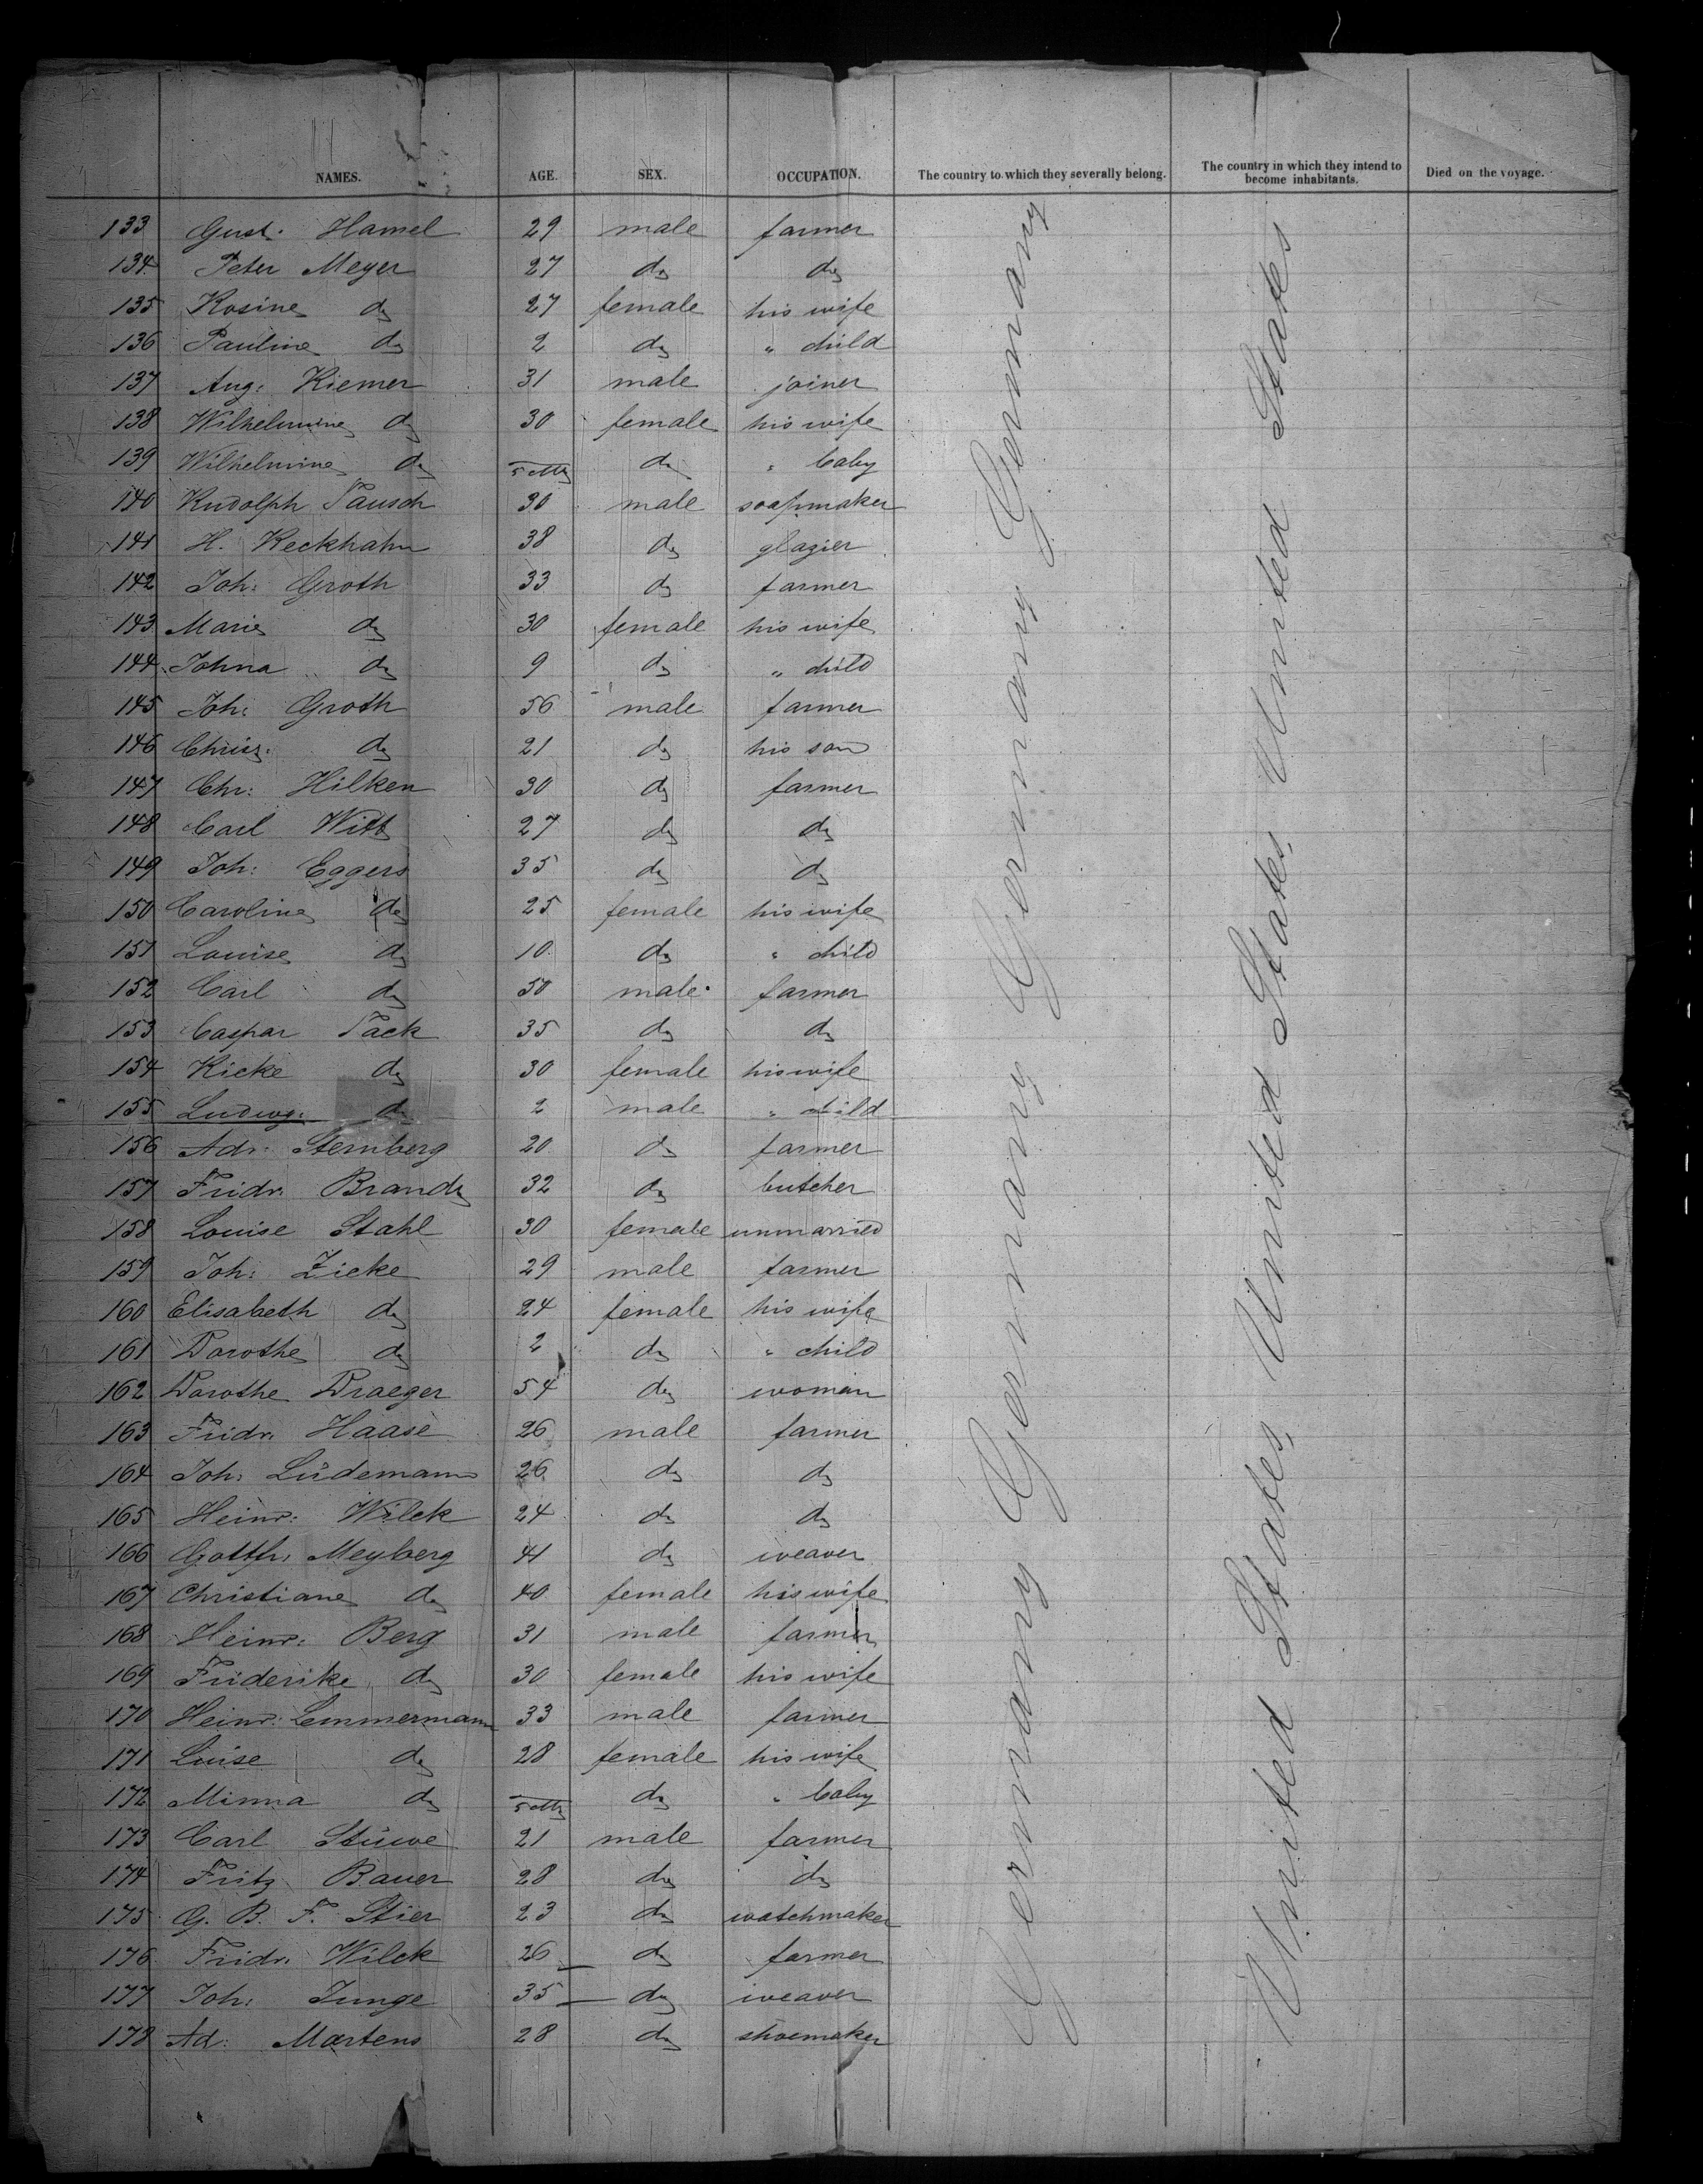 NAMES. AGE. SEX. OCCUPATION. The country to which they severally belong. The country in which they intend to become inhabitants. Died on the voyage.
133 Gust. Hamel 29 male farmer
134 Peter Meyer 27 do do
135 Rosine do 27 female his wife
136 Pauline do 2 do " child
137 Aug: Kiemer 31 male joiner
138 Wilhelmine do 30 female his wife
139 Wilhelmine do 5 Mts do " baby
140 Rudolph Pausch 30 male soapmaker
141 H. Reckhahn 38 do glazier
142 Joh: Groth 33 do farmer
143 Marie do 30 female his wife
144 Johna do 9 do " child
145 Joh: Groth 56 male farmer
146 Chris: do 21 do his son
147 Chr: Hilken 30 do farmer
148 Carl Witt 27 do do
149 Joh: Eggers 35 do do
150 Caroline do 25 female his wife
151 Louise do 10 do " child
152 Carl do 50 male farmer
153 Caspar Pack 35 do do
154 Rieke do 30 female his wife
155 Ludwg: do 2 male " child
156 Adr. Sternberg 20 do farmer
157 Fridr. Brandt 32 do butcher
158 Louise Stahl 30 female unmarried
159 Joh: Zicke 29 male farmer
160 Elisabeth do 24 female his wife
161 Dorothe do 2 do " child
162 Dorothe Draeger 54 do woman
163 Fridr. Haase 26 male farmer
164 Joh: Lüdemann 26 do do
165 Heinr: Wilck 24 do do
166 Gottfr: Meyberg 41 do weaver
167 Christiane do 40 female his wife
168 Heinr: Berg 31 male farmer
169 Friderike do 30 female his wife
170 Heinr: Lemmermann 33 male farmer
171 Luise do 28 female his wife
172 Minna do 5 Mts do " baby
173 Carl Stüwe 21 male farmer
174 Fritz Bauer 28 do do
175 G. B. F. Stier 23 do watchmaker
176 Fridr. Wilck 26 do farmer
177 Joh: Junge 35 do weaver
178 Ad. Martens 28 do shoemaker
Germany Germany Germany Germany
United States, United States, United States